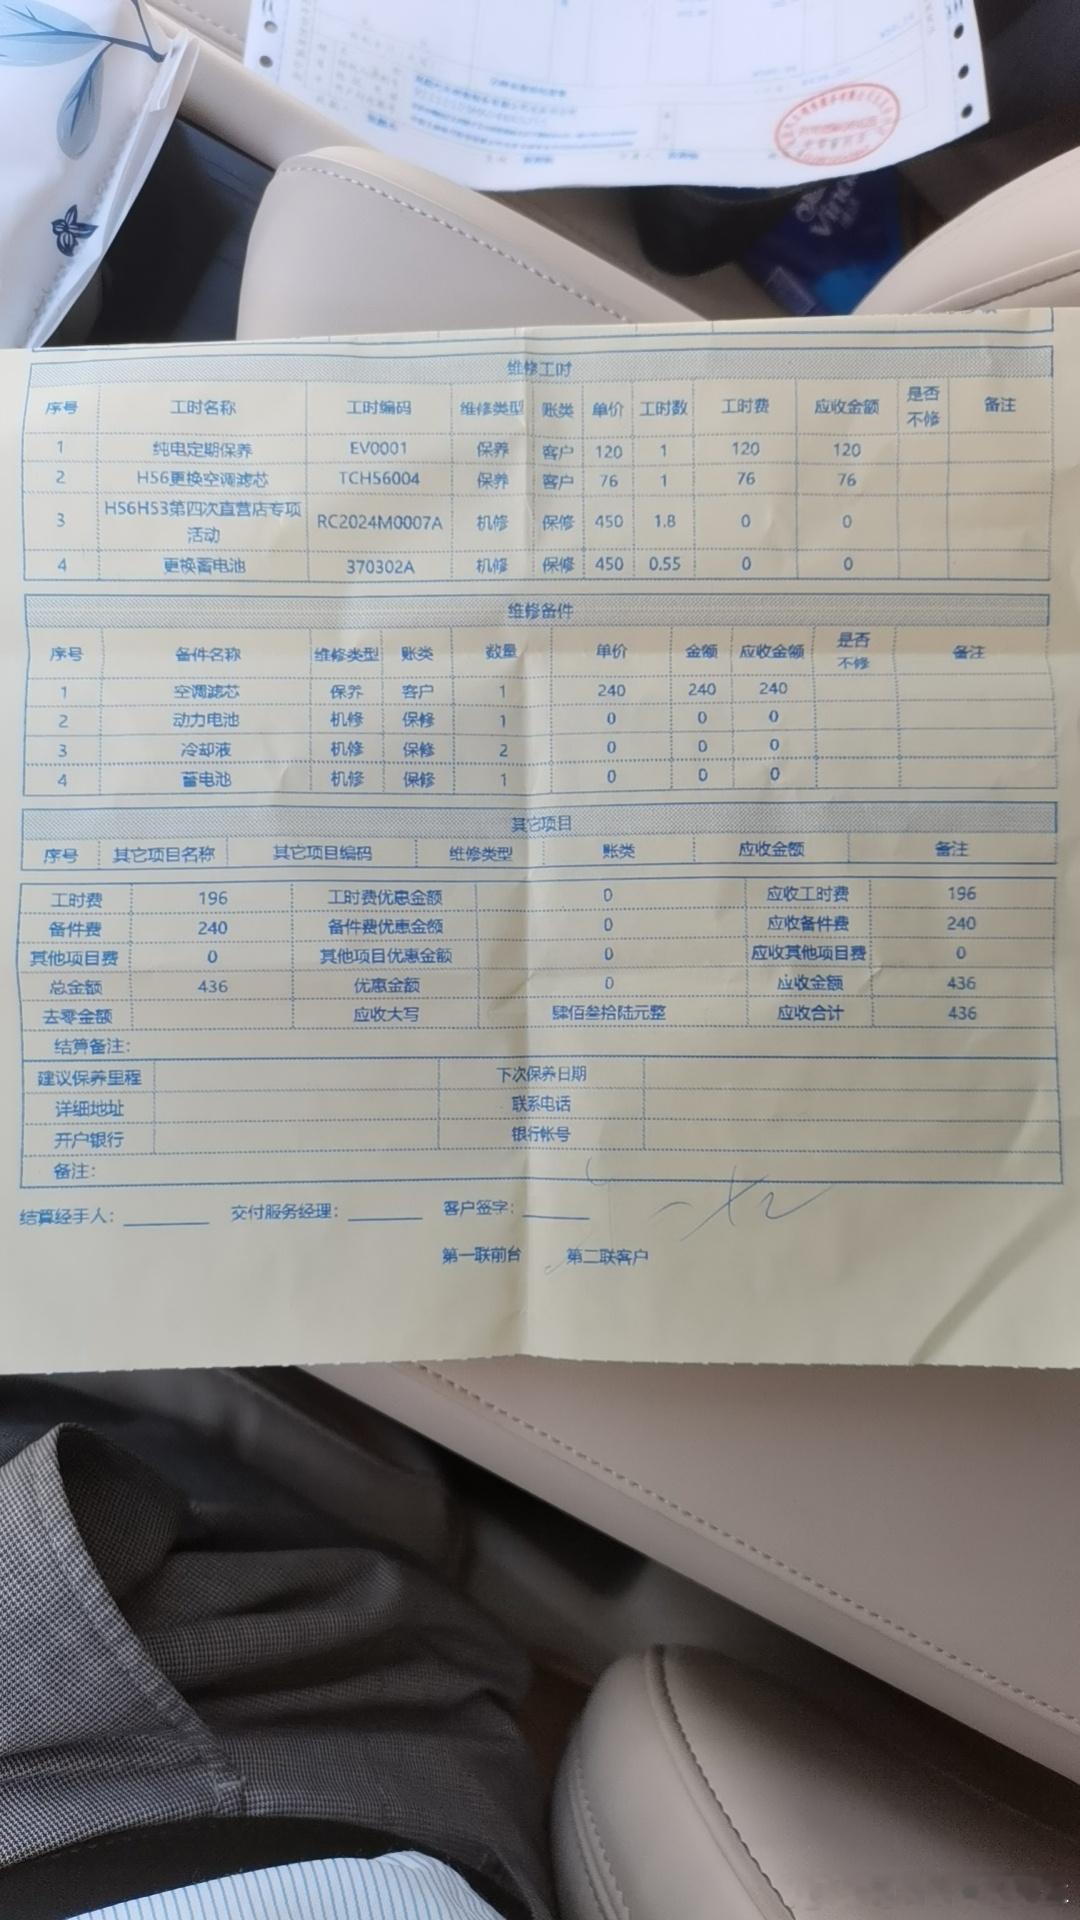 Vinda
维修工时
序号 工时名称 工时编码 维修类型 账类 单价 工时数 工时费 应收金额 是否不修 备注
1 纯电定期保养 EV0001 保养 客户 120 1 120 120
2 H56更换空调滤芯 TCH56004 保养 客户 76 1 76 76
3 H56H53第四次直营店专项活动 RC2024M0007A 机修 保修 450 1.8 0 0
4 更换蓄电池 370302A 机修 保修 450 0.55 0 0
维修备件
序号 备件名称 维修类型 账类 数量 单价 金额 应收金额 是否不修 备注
1 空调滤芯 保养 客户 1 240 240 240
2 动力电池 机修 保修 1 0 0 0
3 冷却液 机修 保修 2 0 0 0
4 蓄电池 机修 保修 1 0 0 0
其它项目
序号 其它项目名称 其它项目编码 维修类型 账类 应收金额 备注
工时费 196 工时费优惠金额 0 应收工时费 196
备件费 240 备件费优惠金额 0 应收备件费 240
其他项目费 0 其他项目优惠金额 0 应收其他项目费 0
总金额 436 优惠金额 0 应收金额 436
去零金额 应收大写 肆佰叁拾陆元整 应收合计 436
结算备注：
建议保养里程 下次保养日期
详细地址 联系电话
开户银行 银行帐号
备注：
结算经手人： 交付服务经理： 客户签字：
第一联前台 第二联客户